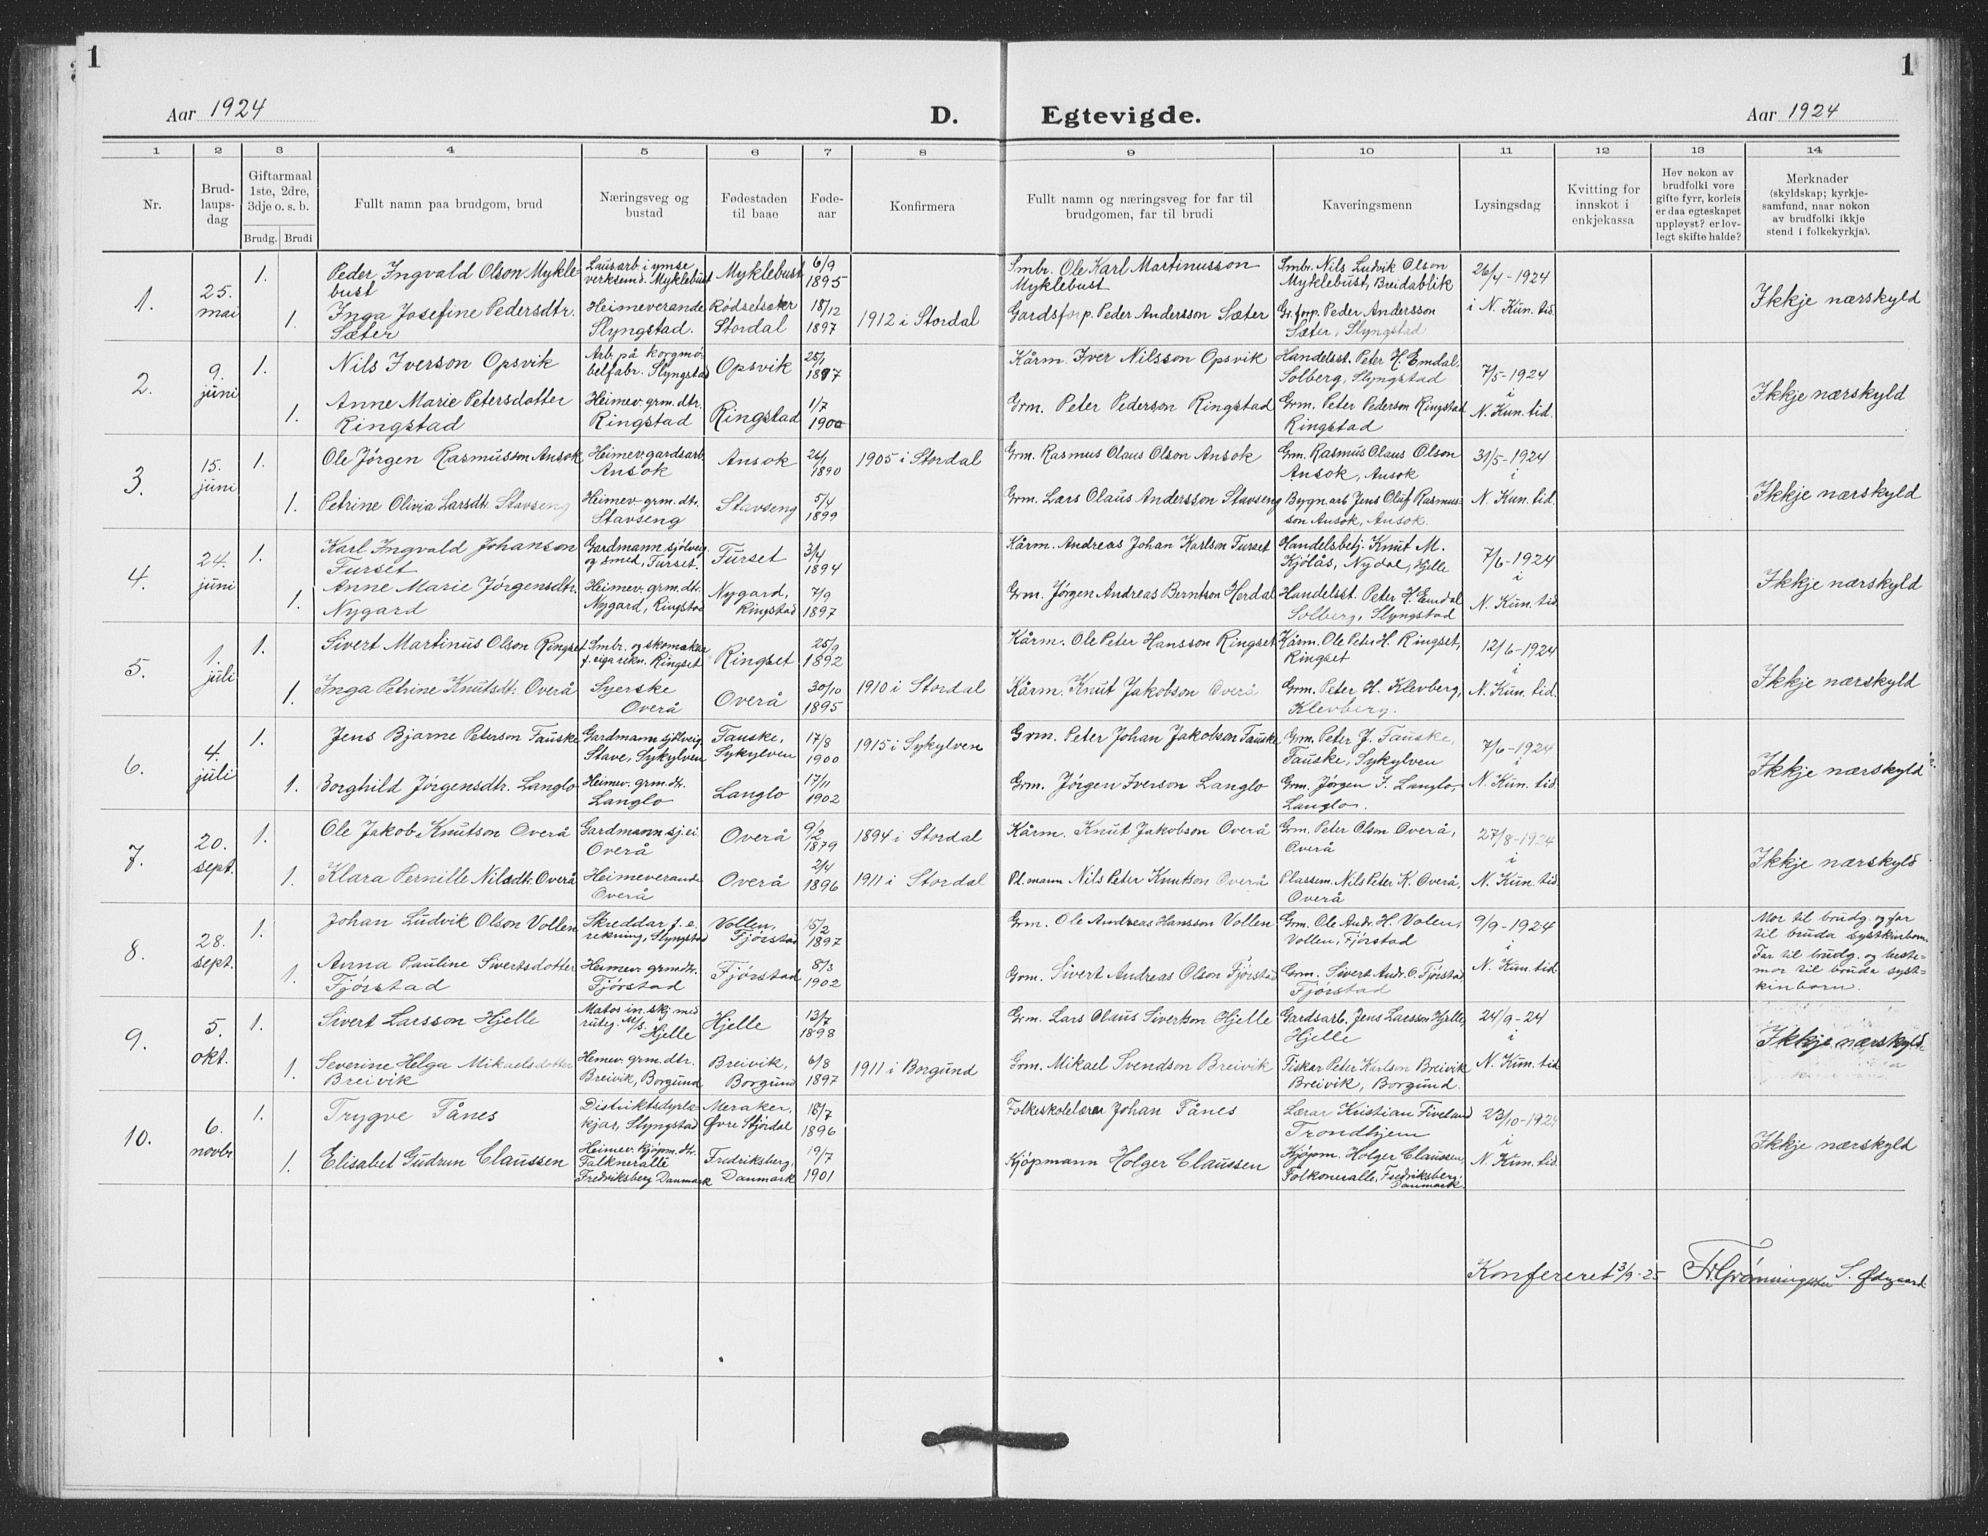 1
1
Aar 1924
D. Egtevigde.
Aar 1924
1 2 3 4 5 6 7 8 9 10 11 12 13 14
Nr.
Brud-
laups-
dag
Giftarmaal
1ste, 2dre,
3dje o. s. b.
Brudg. Brudi
Fullt namn paa brudgom, brud
Næringsveg og
bustad
Fødestaden
til baae
Føde-
aar
Konfirmera
Fullt namn og næringsveg for far til
brudgomen, far til brudi
Kaveringsmenn
Lysingsdag
Kvitting for
innskot i
enkjekassa
Hev nokon av
brudfolki vore
gifte fyrr, korleis
er daa egteskapet
uppløyst? er lov-
legt skifte halde?
Merknader
(skyldskap; kyrkje-
samfund, naar nokon
av brudfolki ikkje
stend i folkekyrkja).
1.
25.
mai
1.
Peder Ingvald Olson Mykle-
bust
Lausarb. i ymse
verksemd. Myklebust
Myklebust
6/9
1895
Smbr. Ole Karl Martinusson
Myklebust
Smbr. Nils Ludvik Olson
Myklebust, Breidablik
26/4-1924
i N. Kun. tid.
Ikkje nærskyld
1.
Inga Josefine Pedersdtr.
Sæter
Heimeverande
Slyngstad.
Rødsetseter
Stordal
18/12
1897
1912 i Stordal
Gardsforp. Peder Andersson Sæter
Gr. forp. Peder Andersson
Sæter, Slyngstad
2.
9.
juni
1.
Nils Iverson Opsvik
Arb. på korgmø-
belfabr. Slyngstad
Opsvik
25/1
1897
Kårm. Iver Nilsson Opsvik
Handelsst. Peter H. Emdal,
Solberg, Slyngstad
7/5-1924
i
N. Kun. tid.
Ikkje nærskyld
1.
Anne Marie Petersdotter
Ringstad
Heimev. grm. dtr.
Ringstad
Ringstad
1/7
1900
Grm. Peter Pederson Ringstad
Grm. Peter Pederson Ringstad
Ringstad
3.
15.
juni
1.
Ole Jørgen Rasmusson Ansok
Heimev. gardsarb.
Ansok
Ansok
26/1
1890
1905 i Stordal
Grm. Rasmus Olaus Olson Ansok
Grm. Rasmus Olaus Olson
Ansok, Ansok
31/5-1924
i
N. Kun. tid.
Ikkje nærskyld
1.
Petrine Olivia Larsdtr. Stavseng
Heimev. grm. dtr.
Stavseng
Stavseng
5/4
1899
Grm. Lars Olaus Andersson Stavseng
Bygn. arb. Jens Oluf Rasmus-
son Ansok, Ansok.
4.
24.
juni
1.
Karl Ingvald Johanson
Furset
Gardmann sjølveig.
og smed, Furset.
Furset
3/4
1894
Kårm. Andreas Johan Karlson Furset
Handelsbetj. Knut M.
Kjølås, Nydal, Hjelle
7/6-1924
i
N. Kun. tid.
Ikkje nærskyld
1.
Anne Marie Jørgensdtr.
Nygard
Heimev. grm. dtr.
Nygard, Ringstad
Nygard,
Ringstad
7/9
1897
Grm. Jørgen Andreas Berntson Herdal
Handelsst. Peter H. Emdal
Solberg, Slyngstad
5.
1.
juli
1.
Sivert Martinus Olson Ringset
Smbr. og skomakar
f. eiga rekn. Ringset
Ringset
25/9
1892
Kårm. Ole Peter Hansson Ringset
Kårm. Ole Peter H. Ringset,
Ringset
12/6-1924
i
N. Kun. tid.
Ikkje nærskyld
1.
Inga Petrine Knutsdtr. Overå
Syerske
Overå
Overå
30/10
1895
1910 i Stordal
Kårm. Knut Jakobson Overå
Grm. Peter H. Klevberg,
Klevberg.
6.
4.
juli
1.
Jens Bjarne Peterson Tauske
Gardmann sjølveig.
Stave, Sykylven
Tauske,
Sykylven
17/8
1900
1915 i Sykylven
Grm. Peter Johan Jakobson Tauske
Grm. Peter J. Tauske,
Tauske, Sykylven
7/6-1924
i
N. Kun. tid.
Ikkje nærskyld
1.
Borghild Jørgensdtr. Langlo
Heimev. grm. dtr.
Langlo
Langlo
17/11
1902
Grm. Jørgen Iverson Langlo
Grm. Jørgen I. Langlo,
Langlo.
7.
20.
sept.
1.
Ole Jakob Knutson Overå
Gardmann sj.ei.
Overå
Overå
9/2
1879
1894 i Stordal
Kårm. Knut Jakobson Overå
Grm. Peter Olson Overå,
Overå
27/8-1924
i
N. Kun. tid.
Ikkje nærskyld
1.
Klara Pernille Nilsdtr. Overå
Heimeverande
Overå
Overå
2/4
1896
1911 i Stordal
Pl. mann Nils Peter Knutson Overå
Plassem. Nils Peter K. Overå,
Overå
8.
28.
sept.
1.
Johan Ludvik Olson Vollen
Skreddar f. e.
rekning, Slyngstad
Vollen,
Fjørstad
15/2
1897
Grm. Ole Andreas Hansson Vollen
Grm. Ole Andr. H. Volen,
Vollen, Fjørstad
9/9-1924
i
N. Kun. tid.
Mor til brudg. og far
til bruda systkinborn.
Far til brudg. og beste-
mor til bruda syst-
kinborn.
1.
Anna Pauline Sivertsdotter
Fjørstad
Heimev. grm dtr.
Fjørstad
Fjørstad
8/3
1902
Grm. Sivert Andreas Olson Fjørstad
Grm. Sivert Andr. O. Fjørstad,
Fjørstad
9.
5.
okt.
1.
Sivert Larsson Hjelle
Hjelle
Hjelle
13/7
1898
Grm. Lars Olaus Sivertson Hjelle
Gardsarb. Jens Larsson Hjelle,
Hjelle
24/9-24
i
N. Kun. tid
Ikkje nærskyld
1.
Severine Helga Mikaelsdotter
Breivik
Hemev. grm. dtr.
Breivik, Borgund
Breivik,
Borgund
6/8
1897
1911 i Borgund
Grm. Mikael Svendson Breivik
Fiskar Peter Karlson Breivik
Breivik, Borgund.
10.
6.
novbr.
1.
Trygve Fånes
Distriktsdyrlæ-
kjar, Slyngstad
Meraker,
Øvre Stjørdal
18/7
1896
Folkeskolelærar Johan Fånes
Lærar Kristian Fiveland
Trondhjem
23/10-1924
i
N. Kun. tid.
Ikkje nærskyld
1.
Elisabet Gudrun Claussen
Heimev. kjøpm. dtr.
Falkneralle
Fredriksberg Danmark
Fredriksberg,
Danmark
19/7
1901
Kjøpmann Holger Claussen
Kjøpm. Holger Claussen,
Folkoneralle, Fredriksberg
Danmark.
Konfereret 3/9-25
S. Ødegaard